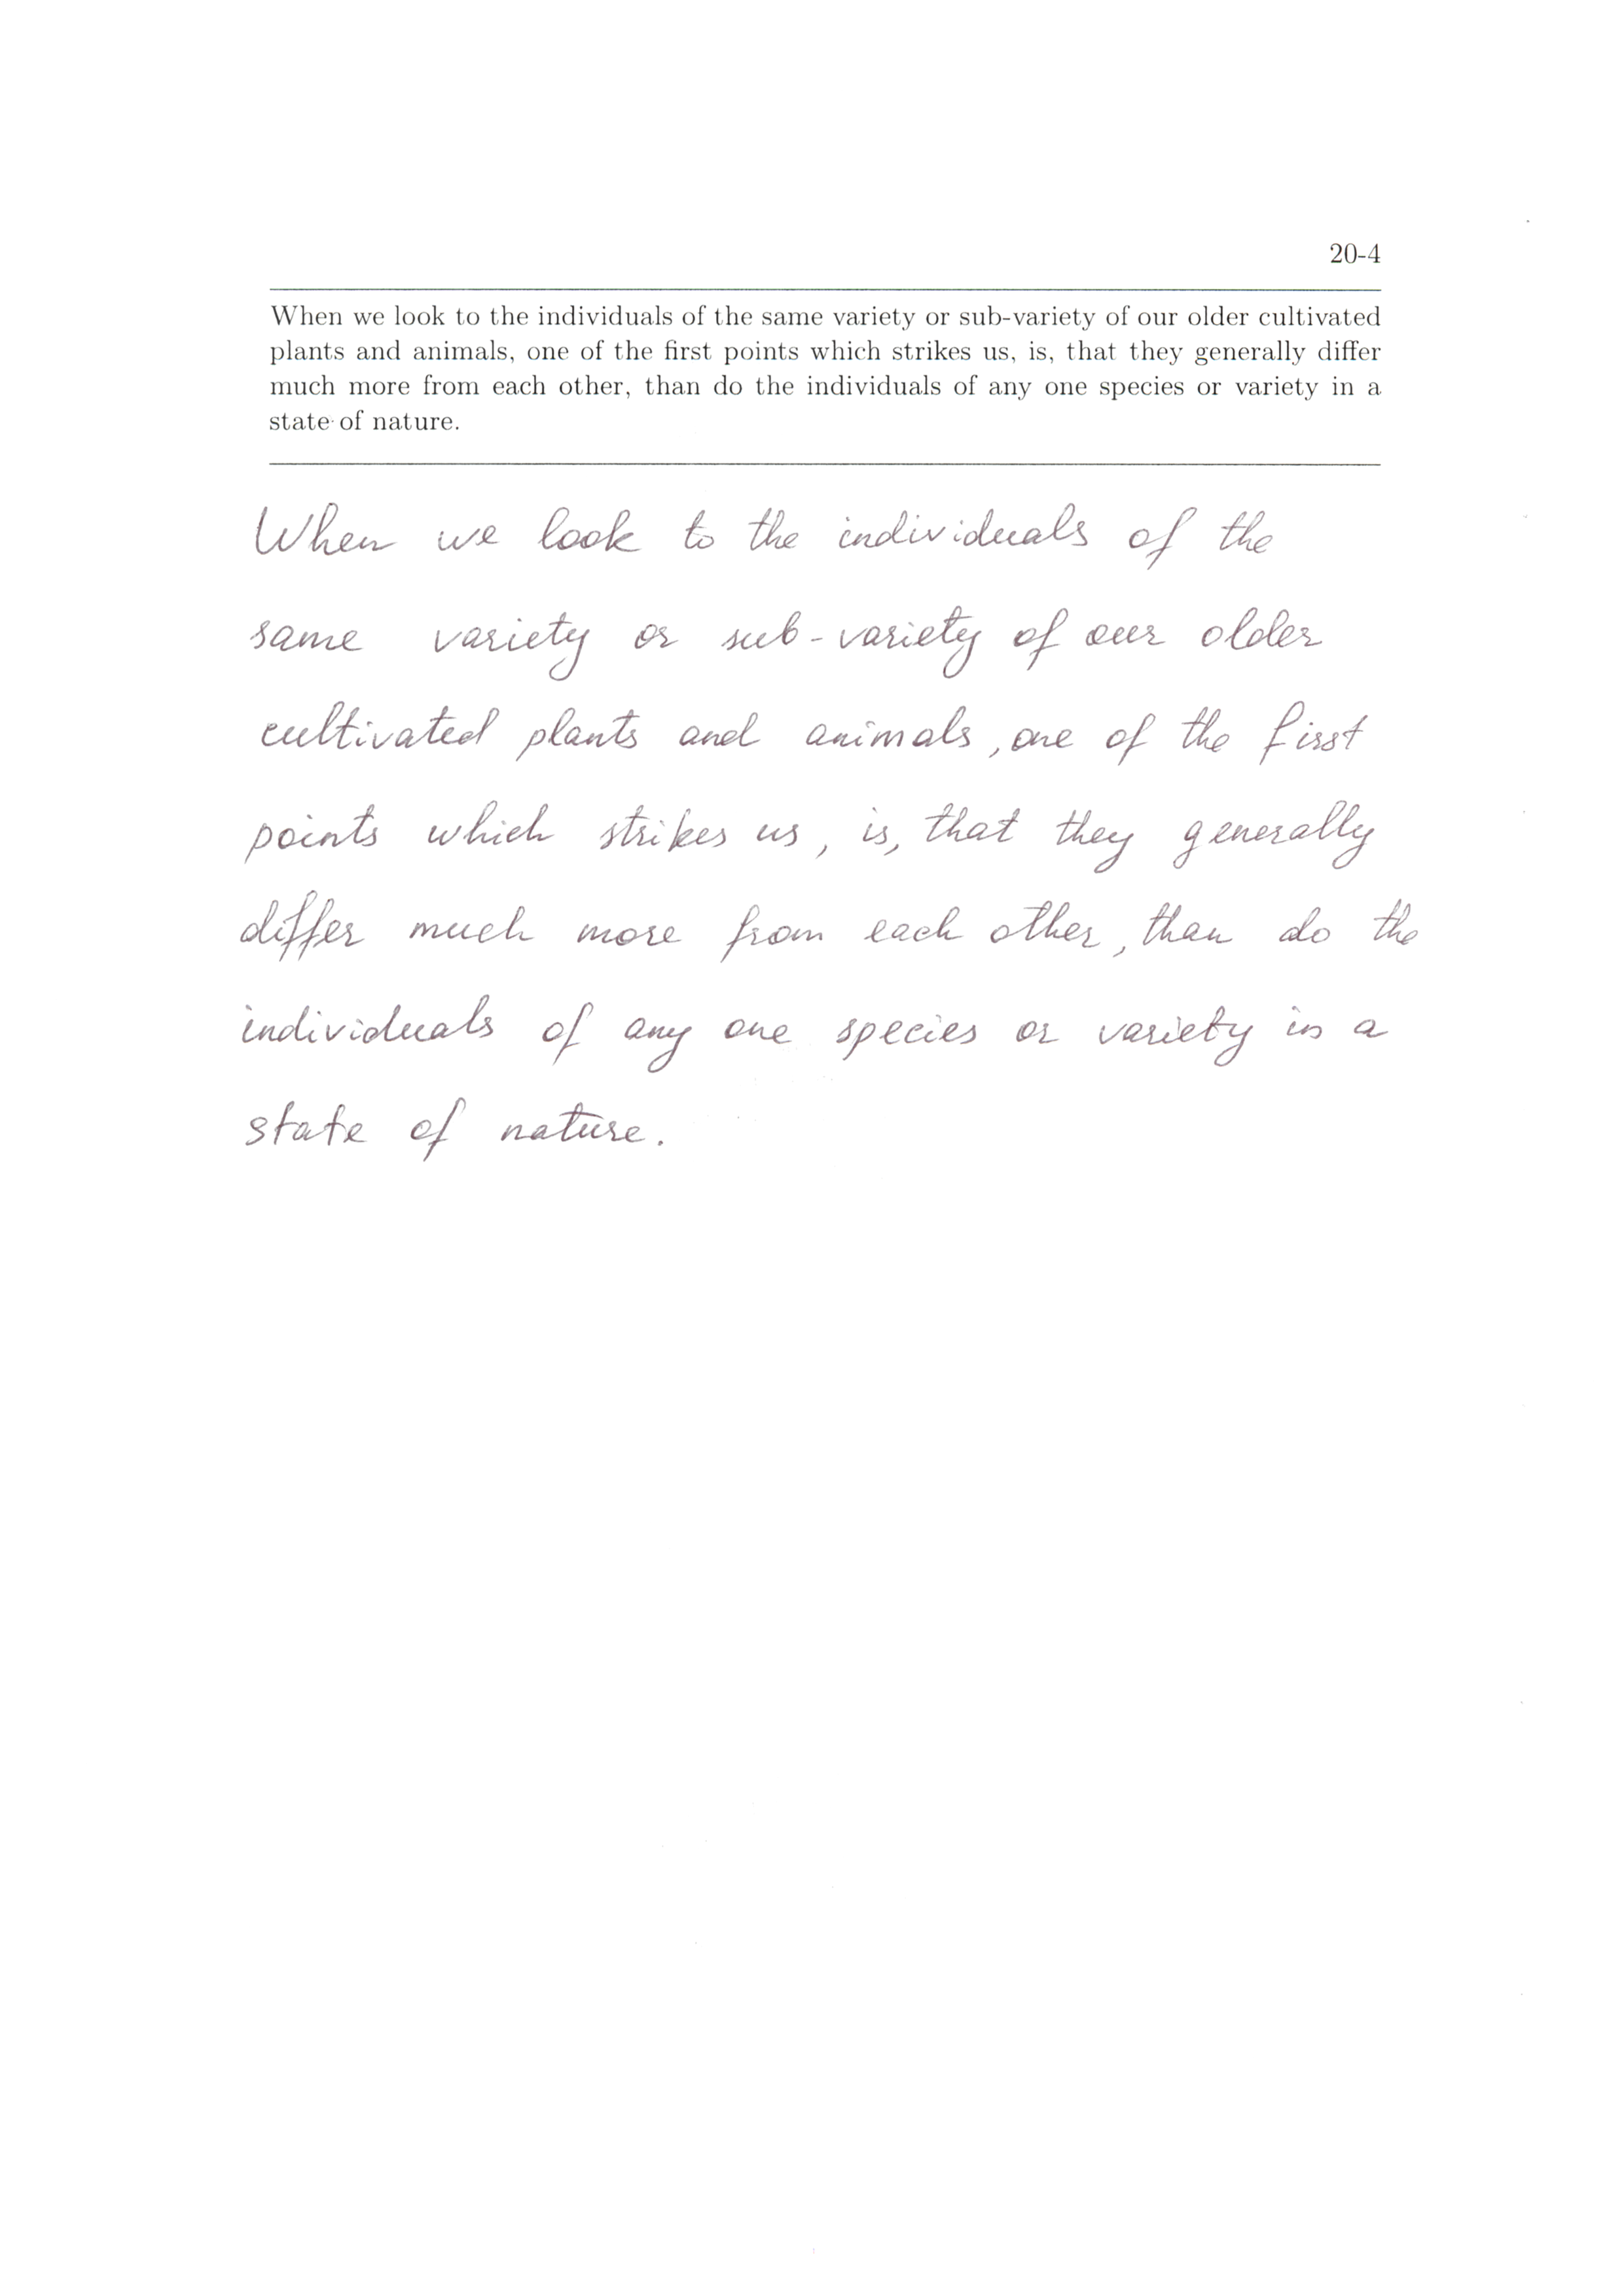 20-4
When we look to the individuals of the same variety or sub-variety of our older cultivated
plants and animals, one of the first points which strikes us, is, that they generally differ
much more from each other, than do the individuals of any one species or variety in a
state of nature.
When we look to the individuals of the
same variety or sub-variety of our older
cultivated plants and animals, one of the first
points which strikes us, is, that they generally
differ much more from each other, than do the
individuals of any one species or variety in a
state of nature.